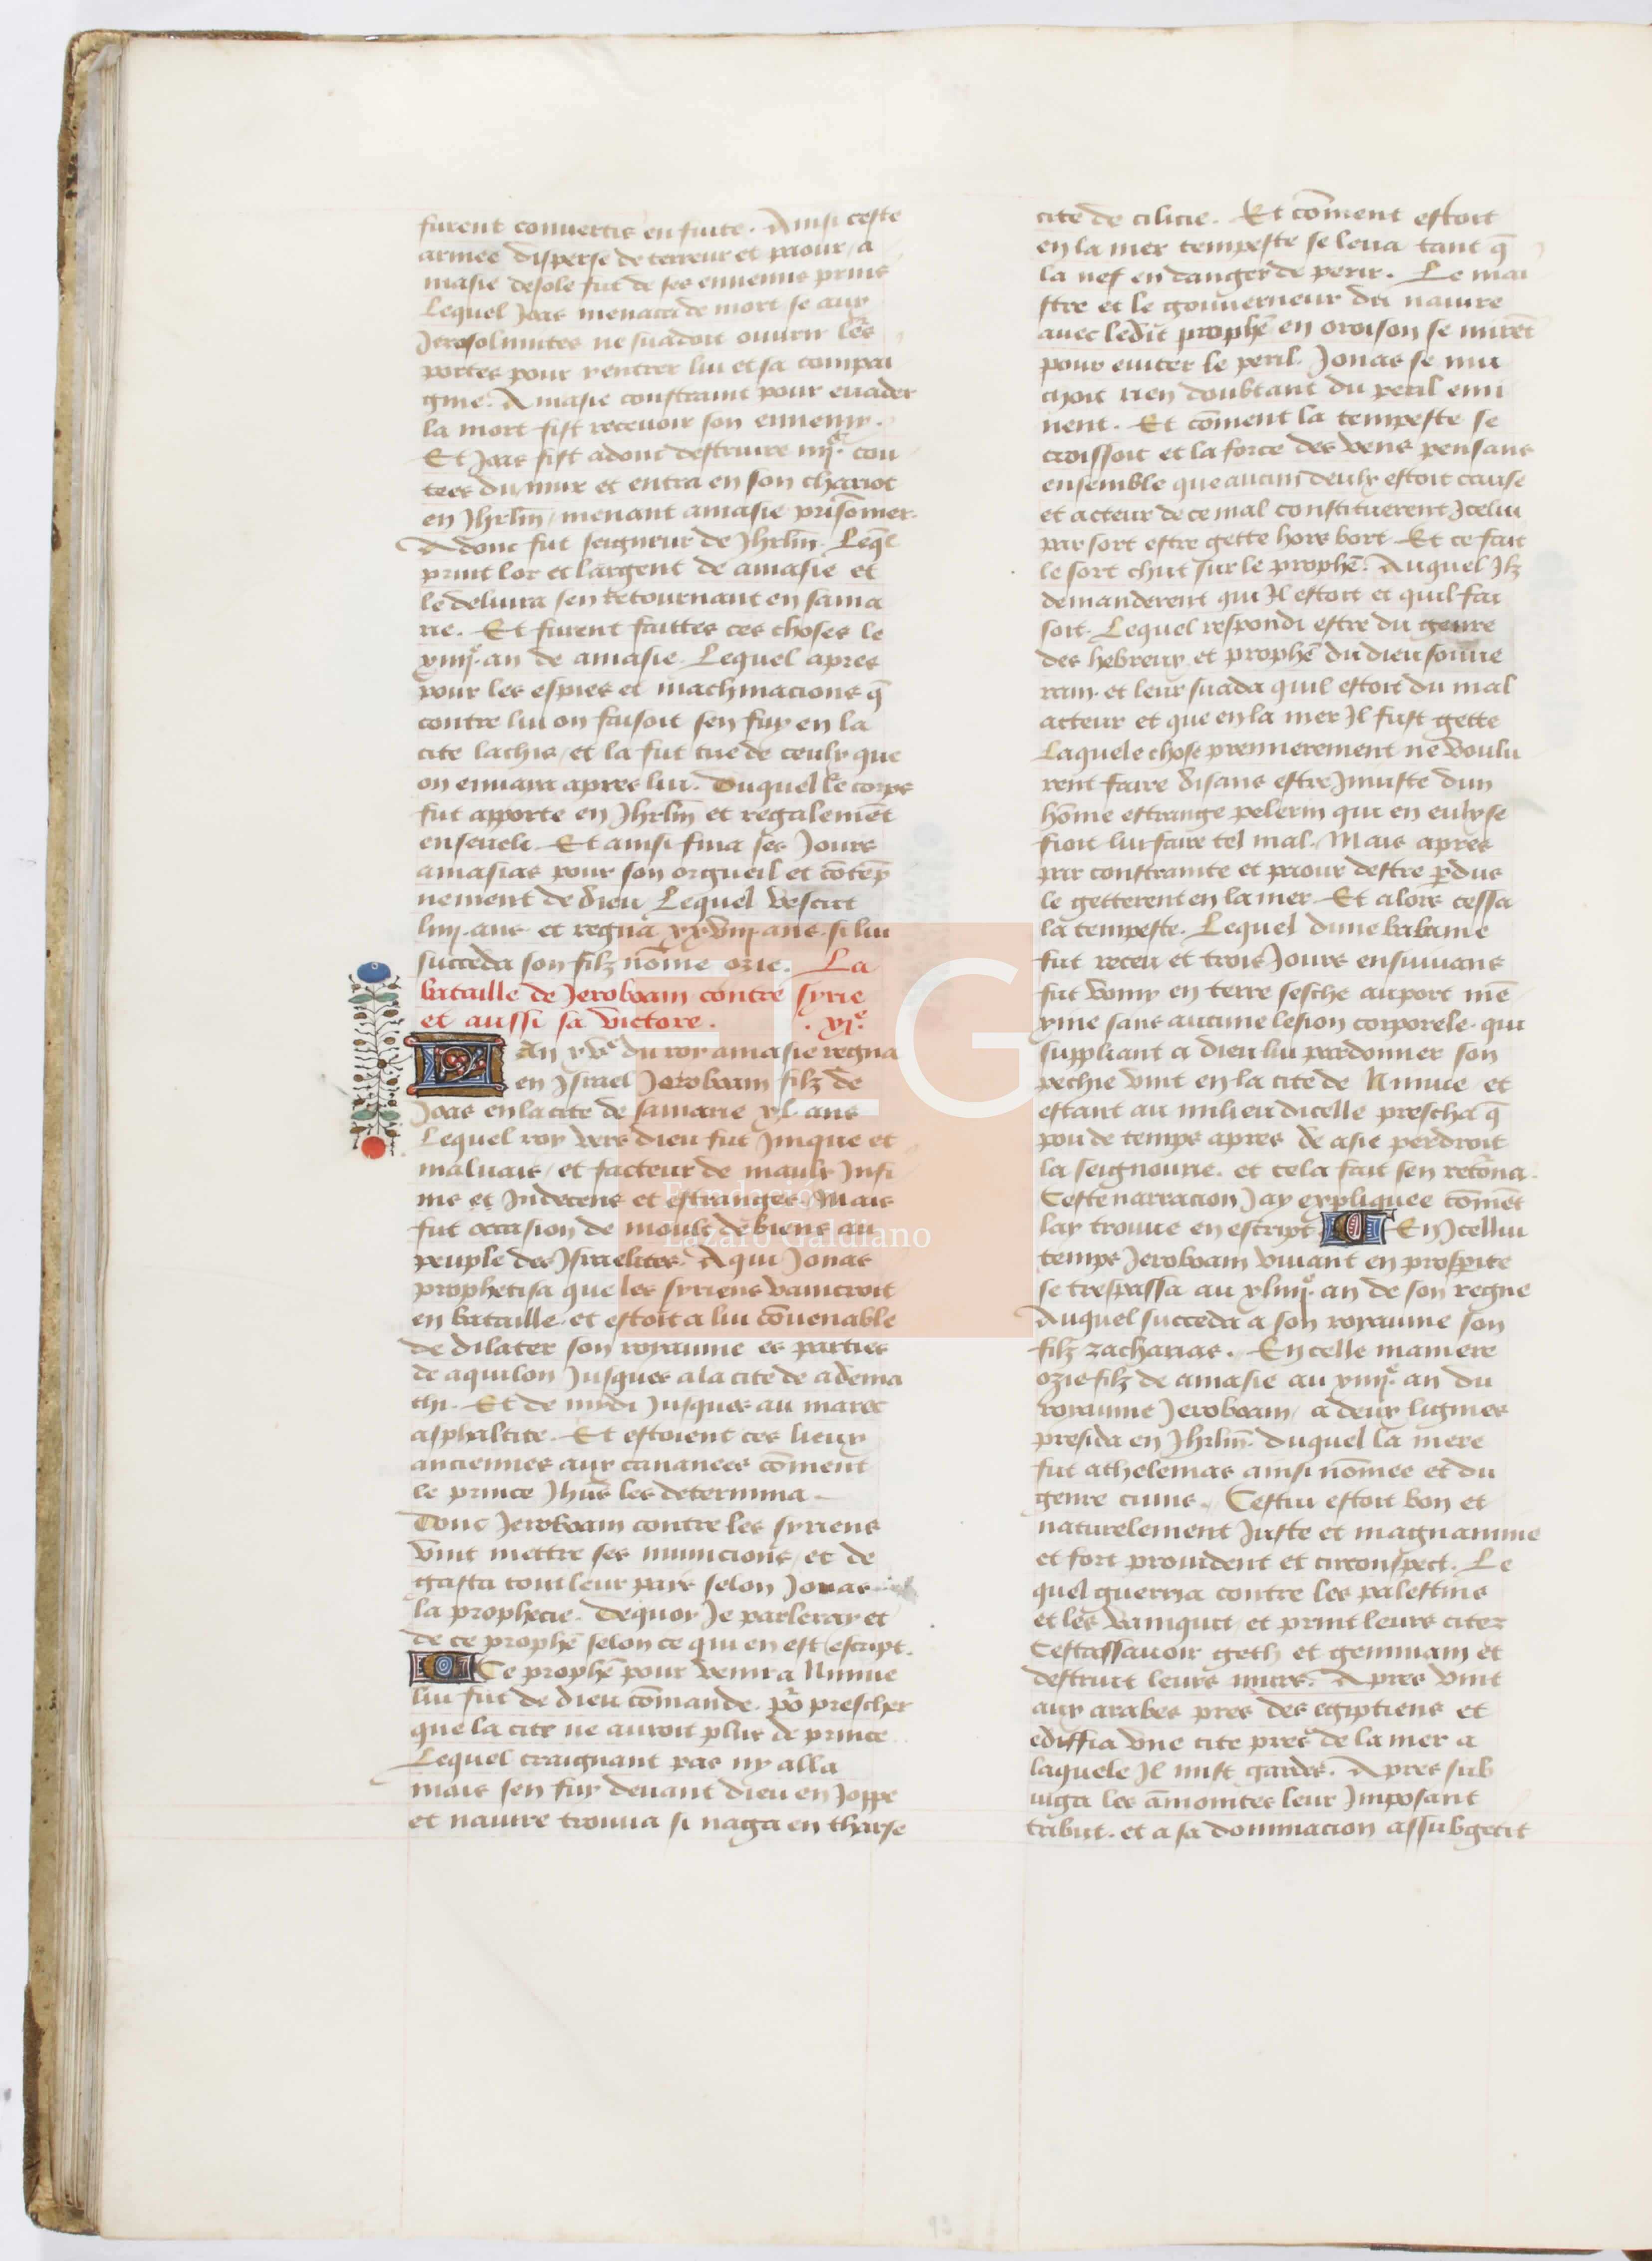 furent conuertis en fuite. Ainsi ceste
armee disperse de terreur et paour / a
masie desole fut de ses ennemis prins
Lequel Joas menaca de mort se aux
Jerosolimites ne suadoit ouurir les
portes pour rentrer lui et sa compai
gnie. Amasie constraint pour euader
la mort fist receuoir son ennemy.
Et Joas fist adonc destruire iiijᶜ. cou
tees du mur et entra en son chariot
en Jhrlm̄ / menant amasie prisonnier.
Adonc fut seigneur de Jhrlm̄. Leql̄
print lor et largent de amasie et
le deliura sen Retournant en sama
rie. Et furent faittes ces choses le
xiiijᵉ. an de amasie. Lequel apres
pour les espies et machinacions q̄
contre lui on faisoit sen fuy en la
cite lachis / et la fut tue de ceulx que
on enuoia apres lui. Duquel le corps
fut apporte en Jhrlm̄ et regalemēt
enseueli. Et ainsi fina ses Jours
amasias pour son orgueil et cōtēp
nement de dieu Lequel vescut
liiij. ans et regna xxviiij. ans. si lui
succeda son filz nōme ozie. La
bataille de Jeroboam contre syrie
et aussi sa victore. . xjᵉ.
an xvᵉ du roy amasie regna
en Israel Jeroboam filz de
Joas en la cite de samarie xl. ans
Lequel roy vers dieu fut Jnique et
maluais / et facteur de maulx Jnfi
nis et Jndecens et estranges. Mais
fut occasion de moult de biens au
peuple des Jsraelites. A qui Jonas
prophetisa que les syriens vaincroit
en bataille. et estoit a lui cōuenable
de dilater son royaume es parties
de aquilon Jusques a la cite de adema
thi. Et de midi Jusques au maret
asphaltite. Et estoient ces lieux
anciennes aux cananees cōment
le prince Jhūs les determina.
Donc Jeroboam contre les syriens
vint mettre ses municions / et de
gasta tout leur pais selon Jonas
la prophecie. De quoy Je parleray et
de ce prophē selon ce qui en est escript.
Ce prophē pour venir a Niniue
lui fut de dieu cōmande. po̅ prescher
que la cite ne auroit plus de prince
Lequel craignant pas ny alla
mais sen fuy deuant dieu en Joppe
et nauire trouua si naga en tharse
cite de cilicie. Et cōment estoit
en la mer tempeste se leua tant q̄
la nef en danger de perir. Le mai
stre et le gouuerneur du nauire
auec ledit prophē en oroison se mirēt
pour euiter le peril. Jonas se mu
choit rien doubtant du peril emi
nent. Et cōment la tempeste se
croissoit et la force des vens pensans
ensemble que aucun deulx estoit cause
et acteur de ce mal constituerent Jcelui
par sort estre gette hors bort. Et ce fait
le sort chut sur le prophē. Auquel Jlz
demanderent qui Jl estoit et quil fai
soit. Lequel respondi estre du genre
des hebreux et prophē du dieu souue
rain. et leur suada quil estoit du mal
acteur et que en la mer Jl fust gette
Laquele chose premierement ne voulu
rent faire disans estre Jniuste dun
hōme estrange pelerin qui en eulx se
fioit lui faire tel mal. Mais apres
par constrainte et paour destre p̄dus
le getterent en la mer. Et alors cessa
la tempeste. Lequel dune balaine
fut receu et trois Jours ensuiuans
fut vomy en terre sesche au port mē
xine sans aucune lesion corporele. qui
suppliant a dieu lui pardonner son
pechie vint en la cite de Niniue / et
estant au milieu dicelle prescha q̄
pou de temps apres de asie perdroit
la seignourie. et cela fait sen retōna.
Ceste narracion Jay expliquee cōmēt
lay trouue en escript. En Jcellui
temps Jeroboam viuant en prosp̄ite
se trespassa au xliiijᵉ. an de son regne
Auquel succeda a son royaume son
filz zacharias. En celle maniere
ozie filz de amasie au xiiijᵉ. an du
royaume Jeroboam / a deux lignies
presida en Jhrlm̄. duquel la mere
fut athelemas ainsi nōmee et du
genre ciuis. Cestui estoit bon et
naturelement Juste et magnanime
et fort prouident et circonspect. Le
quel guerria contre les palestins
et les vainquit / et print leurs citez
Cestassauoir geth et geminiam et
destruit leurs murs. Apres vint
aux arabes pres des egiptiens et
ediffia vne cite pres de la mer a
laquele Jl mist gardes. Apres sub
iuga les āmonites leur Jmposant
tribut. et a sa dominacion assubgetit
FLG
Fundación
Lázaro Galdiano
93